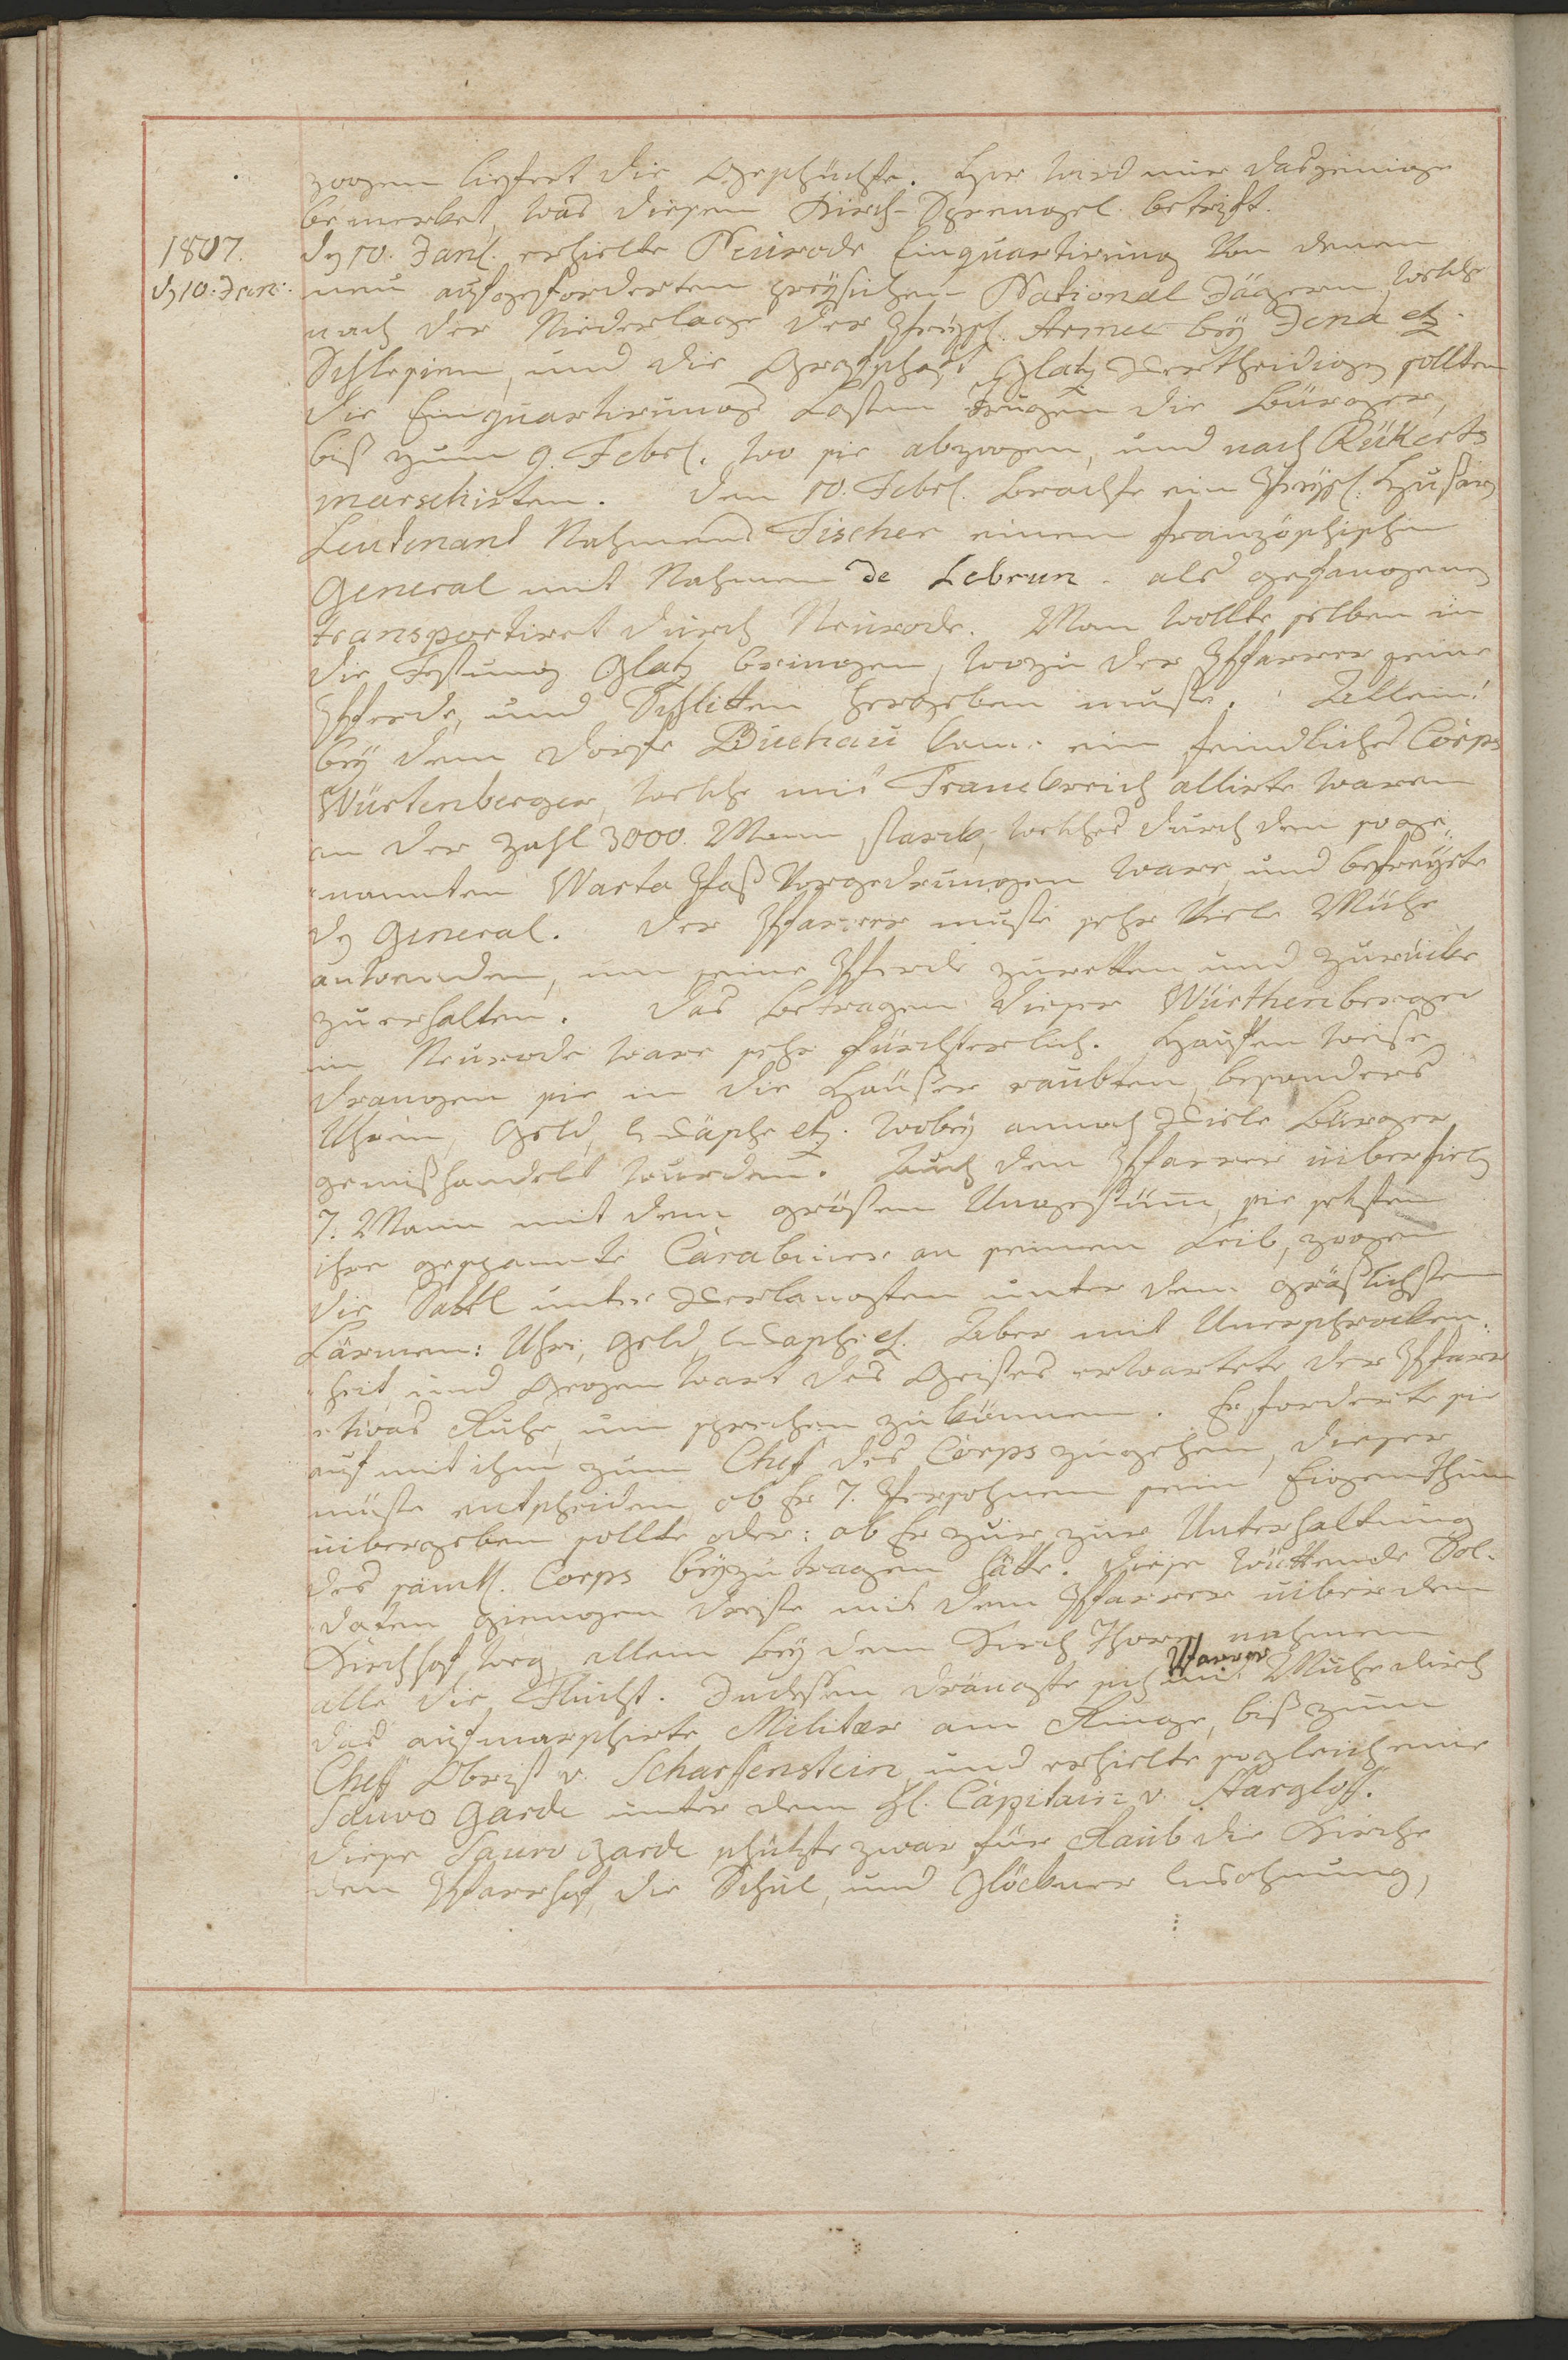 zogen liefert die Geschichte. Hier wird nur dasjenige
bemerket, was diesen Kirch-Sprengel betrift.
1807.
dn 10. Jan:
dn 10. Janl. erhielte Neurode Einquartirung von denen
neu aufgeforderten preÿsichen National Jägern, welche
nach der Niederlage der Preyßl. Armee beÿ Jena etz.
Schlesien, und die Grafschaft Glatz vertheidigen sollten
die Einquartirungs Lasten trugen die Bürger,
biß zum 9. Febrl. wo sie abzogen, und nach Rükerts
marschirten. Den 10. Febrl. brachte ein Preÿßl. Hußaren
Leutenant Nahmens Fischer einen französischen
General mit Nahmen de Lebrun. als gefangenen
transportiret durch Neurode. Man wollte selben in
die Festung Glatz bringen, wozu der Pfarrer seine
Pferde, und Schlitten hergeben muste. Allein!
beÿ dem Dorfe Buchau kam ein feindliches Corps
Würtenberger, welche mit Franckreich allirte waren
an der Zahl 3000. Mann starck, welches durch den soge„
„nannten Warta Paß vorgedrungen ware, und befreÿete
dn General. Der Pfarrer muste sehr viele Mühe
anwenden, um seine Pferde zuretten und zurücke
zuerhalten. Das Betragen dieser Würthenberger
in Neurode ware sehr fürchterlich. Hauffen weise
drangen sie in die Häußer raubten, besonders
Uhren, Geld, Wäsche etz. wobeÿ annoch viele Bürger
gemißhandelt wurden. Auch den Pfarrer uiberfieln
7. Mann mit dem grösten Ungestüm, sie setzten
ihre gespannte Carabiner an seinen Leib, zogen
die Säbel unter verlangten unter dem gräßlichsten
Lärmen: Uhr, Geld, Wäsche etz. Aber mit Unerschrocken„
„heit, und Gegenwart des Geistes erwartete der Pfarr
etwas Ruhe, um sprechen zu können. Er forderte sie
auf mit ihm zum Chef des Corps zugehen, dieser
müste entscheiden, ob Er 7. Persohnen sein Eigenthum
uibergeben sollte oder: ob Er zur Unterhaltung
des sämtl. Corps beÿzutragen hätte. Diese wüttende Sol-
daten giengen dreiste mit dem Pfarrer uiber den
Kirchhof weg, allein beÿ dem Kirch Thore nahmen
alle die Flucht. Indessen drängte sich Pfarrer mit Mühe durch
das aufmarschirte Militær am Ringe, biß zum
Cheff Obrist v. Scharffenstein, und erhielte sogleich eine
Sauvo Garde unter dem Hl. Capitain v. Stargloff.
Diese Sauvo garde schützte zwar für Raub die Kirche
den Pfarrhof, die Schul, und Glöckner Wohnung,